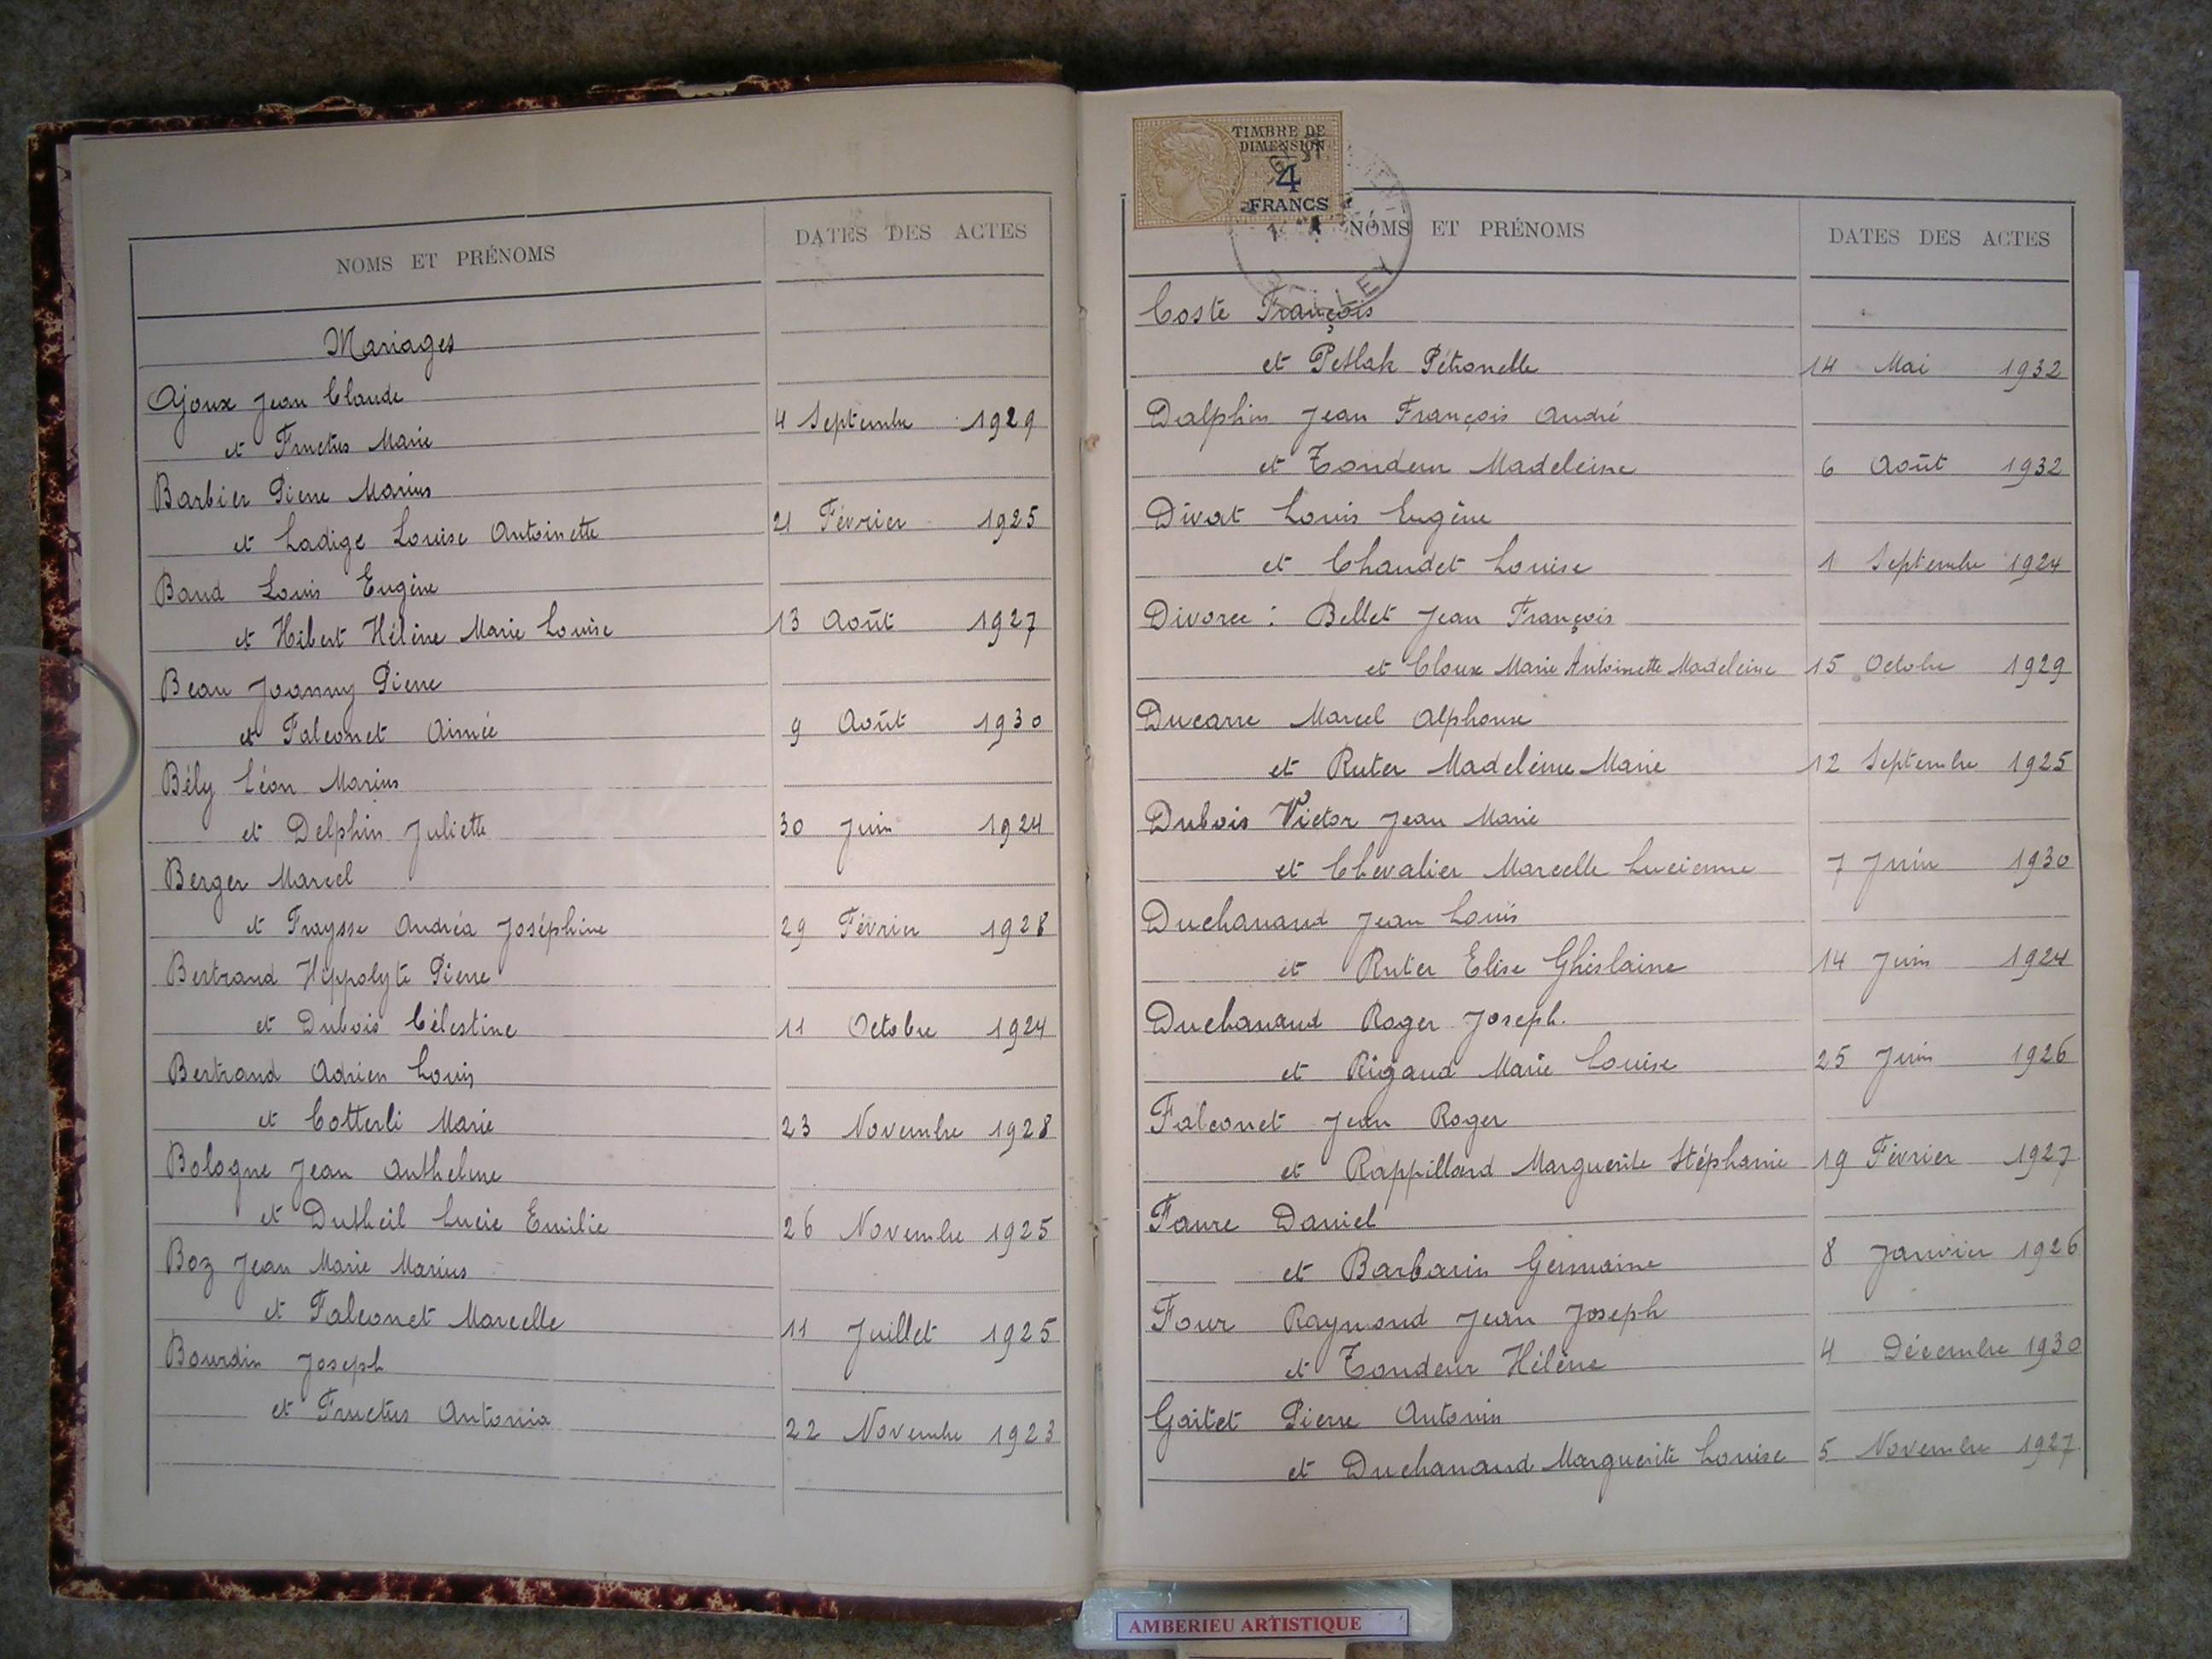 NOMS ET PRÉNOMS DATES DES ACTES
Mariages
Ajoux Jean Claude
et Fructus Marie 4 Septembre 1929
Barbier Pierre Marius
et Ladige Louise Antoinette 21 Février 1925
Baud Louis Eugène
et Hibert Hélène Marie Louise 13 Août 1927
Beau Joanny Pierre
et Falconet Aimée 9 Août 1930
Bély Léon Marius
et Delphin Juliette 30 Juin 1924
Berger Marcel
et Fraysse Andréa Joséphine 29 Février 1928
Bertrand Hippolyte Pierre
et Dubois Célestine 11 Octobre 1924
Bertrand Adrien Louis
et Cotterli Marie 23 Novembre 1928
Bologne Jean Anthelme
et Dutheil Lucie Emilie 26 Novembre 1925
Boz Jean Marie Marius
et Falconet Marcelle 11 Juillet 1925
Bourdin Joseph
et Fructus Antonia 22 Novembre 1923
TIMBRE DE
DIMENSION
4
FRANCS
NOMS ET PRÉNOMS DATES DES ACTES
Coste François
et Petlak Pétronelle 14 Mai 1932
Dalphin Jean François André
et Tondeur Madeleine 6 Août 1932
Divat Louis Eugène
et Chaudet Louise 1 Septembre 1924
Divorce : Bellet Jean François
et Cloux Marie Antoinette Madeleine 15 Octobre 1929
Ducarre Marcel Alphonse
et Ruter Madeleine Marie 12 Septembre 1925
Dubois Victor Jean Marie
et Chevalier Marcelle Lucienne 7 Juin 1930
Duchanaud Jean Louis
et Ruter Elise Ghislaine 14 Juin 1924
Duchanaud Roger Joseph.
et Rigaud Marie Louise 25 Juin 1926
Falconet Jean Roger
et Rappillard Marguerite Stéphanie 19 Février 1927
Faure Daniel
et Barbarin Germaine 8 Janvier 1926
Four Raymond Jean Joseph
et Tondeur Hélène 4 Décembre 1930
Gaitet Pierre Antonin
et Duchanaud Marguerite Louise 5 Novembre 1927
AMBERIEU ARTISTIQUE